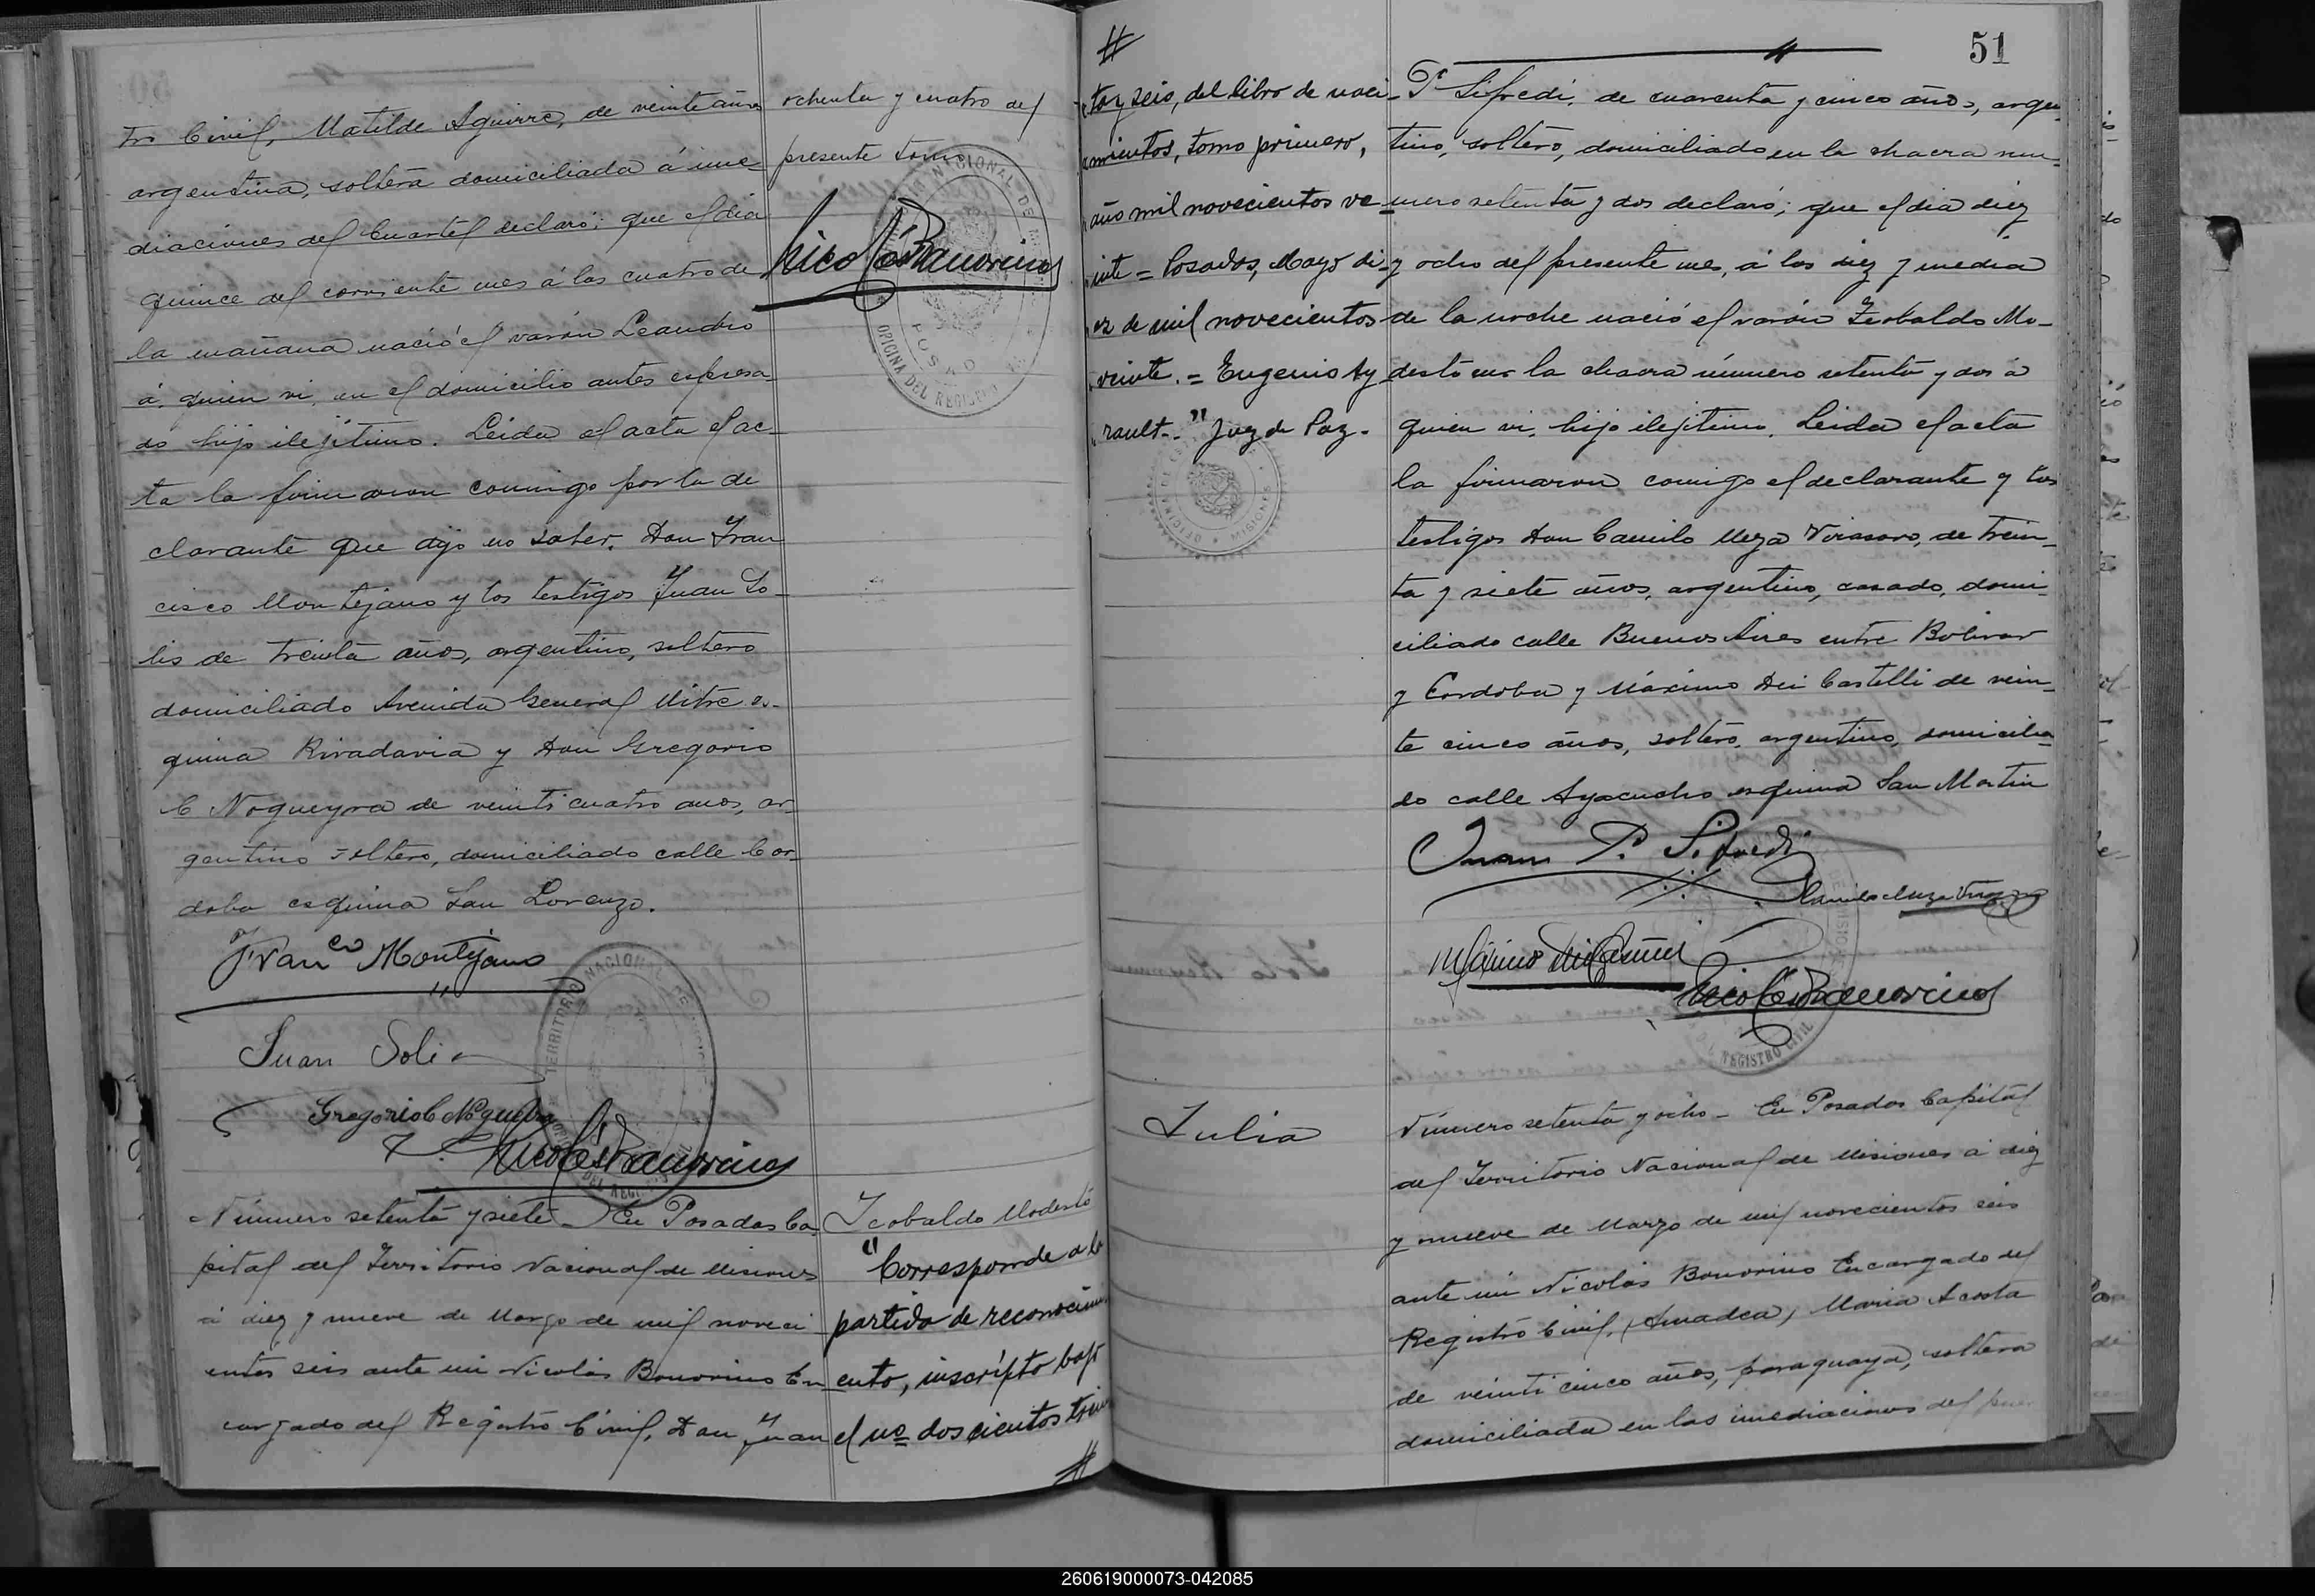 tro Civil, Matilde Aguirre, de veinte años
argentina, soltera domiciliada á inme-
diaciones del Cuartel declaró: que el dia
quince del corriente mes á las cuatro de
la mañana nació el varón Leandro
á quien vi, en el domicilio antes espresa-
do hijo ilejitimo. Leida el acta el ac-
ta la firmaron conmigo por la de
clarante que dijo no saber, Don Fran
cisco Montejano y los testigos Juan So-
lis de treinta años, argentino, soltero
domiciliado Avenida General Mitre es-
quina Rivadavia y Don Gregorio
C Nogueyra de veinticuatro anos, ar-
gentino soltero, domiciliado calle Cor-
doba esquina San Lorenzo.
Franco Montejano
Juan Solis
Gregorio C Nogueyra
Nicolás Bonorino
TERRITORIO NACIONAL DE MISIONES
OFICINA DEL REGISTRO CIVIL
ochenta y cuatro del
presente tomo
Nicolás Bonorino
TERRITORIO NACIONAL DE MISIONES
POSADAS
OFICINA DEL REGISTRO
Número setenta y siete - En Posadas Ca
pital del Territorio Nacional de Misiones
á diez y nueve de Marzo de mil noveci
entos seis ante mi Nicolás Bonorino En
cargado del Registro Civil, Don Juan
Teobaldo Modesto
"Corresponde a la
partida de reconocimi
ento, inscripto bajo
el no doscientos trein
#
#
51
ta y seis, del libro de naci-
amientos, tomo primero,
año mil novecientos ve-
inte = Posadas, Mayo di-
ez de mil novecientos
veinte. = Eugenio Ay
rault.." Juez de Paz.
MISIONES
P. Sifredi, de cuarenta y cinco años, argen-
tino, soltero, domiciliado en la chacra nú-
mero setenta y dos declaró; que el dia diez
y ocho del presente mes, á las diez y media
de la noche nació el varón Teobaldo Mo-
desto en la chacra número setenta y dos á
quien vi, hijo ilejitimo. Leida el acta
la firmaron conmigo el declarante y los
testigos Don Camilo Meza Virasoro, de trein-
ta y siete años, argentino, casado, domi-
ciliado calle Buenos Aires entre Bolivar
y Cordoba y Máximo Dei Castelli de vein-
te cinco años, soltero, argentino, domicilia-
do calle Ayacucho esquina San Martin
Juan P. Sifredi
Camilo Meza Virasoro
Máximo Dei Castelli
Nicolás Bonorino
REGISTRO CIVIL
Julia
Número setenta y ocho - En Posadas Capital
del Territorio Nacional de Misiones á diez
y nueve de Marzo de mil novecientos seis
ante mi Nicolás Bonorino Encargado del
Registro Civil, (Amadea) Maria Acosta
de veinticinco años, paraguaya, soltera
domiciliada en las inmediaciones del puer
260619000073-042085